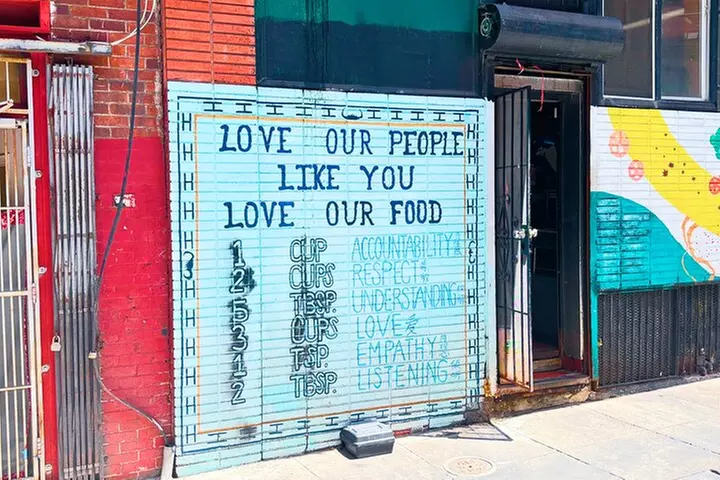 LOVE OUR PEOPLE
LIKE YOU
LOVE OUR FOOD
1 CUP ACCOUNTABILITY
2 CUPS RESPECT
5 TBSP. UNDERSTANDING
3 CUPS LOVE
1 TSP. EMPATHY
2 TBSP. LISTENING